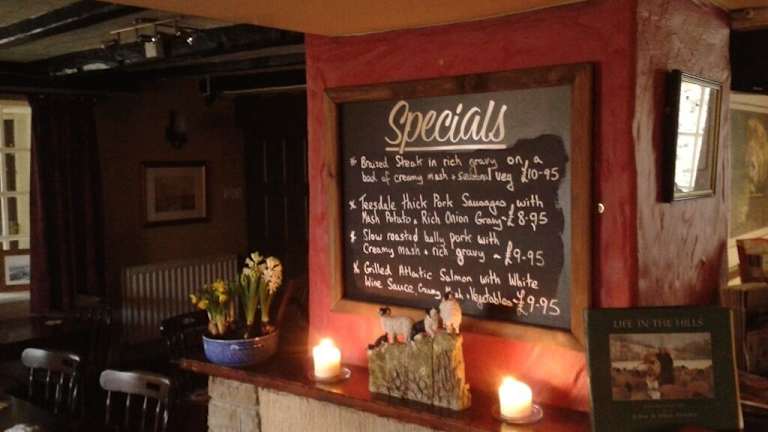 Specials
Braized Steak in rich gravy on a
bad of creamy mash + seasonal veg £10-95
Teesdale thick Pork Sausages with
Mash Potato + Rich Onion Gravy - £8-95
Slow roasted belly pork with
Creamy mash + rich gravy - £9-95
Grilled Atlatic Salmon with White
Wine Sauce, Creamy Mash + Vegetables £9-95
LIFE IN THE HILLS